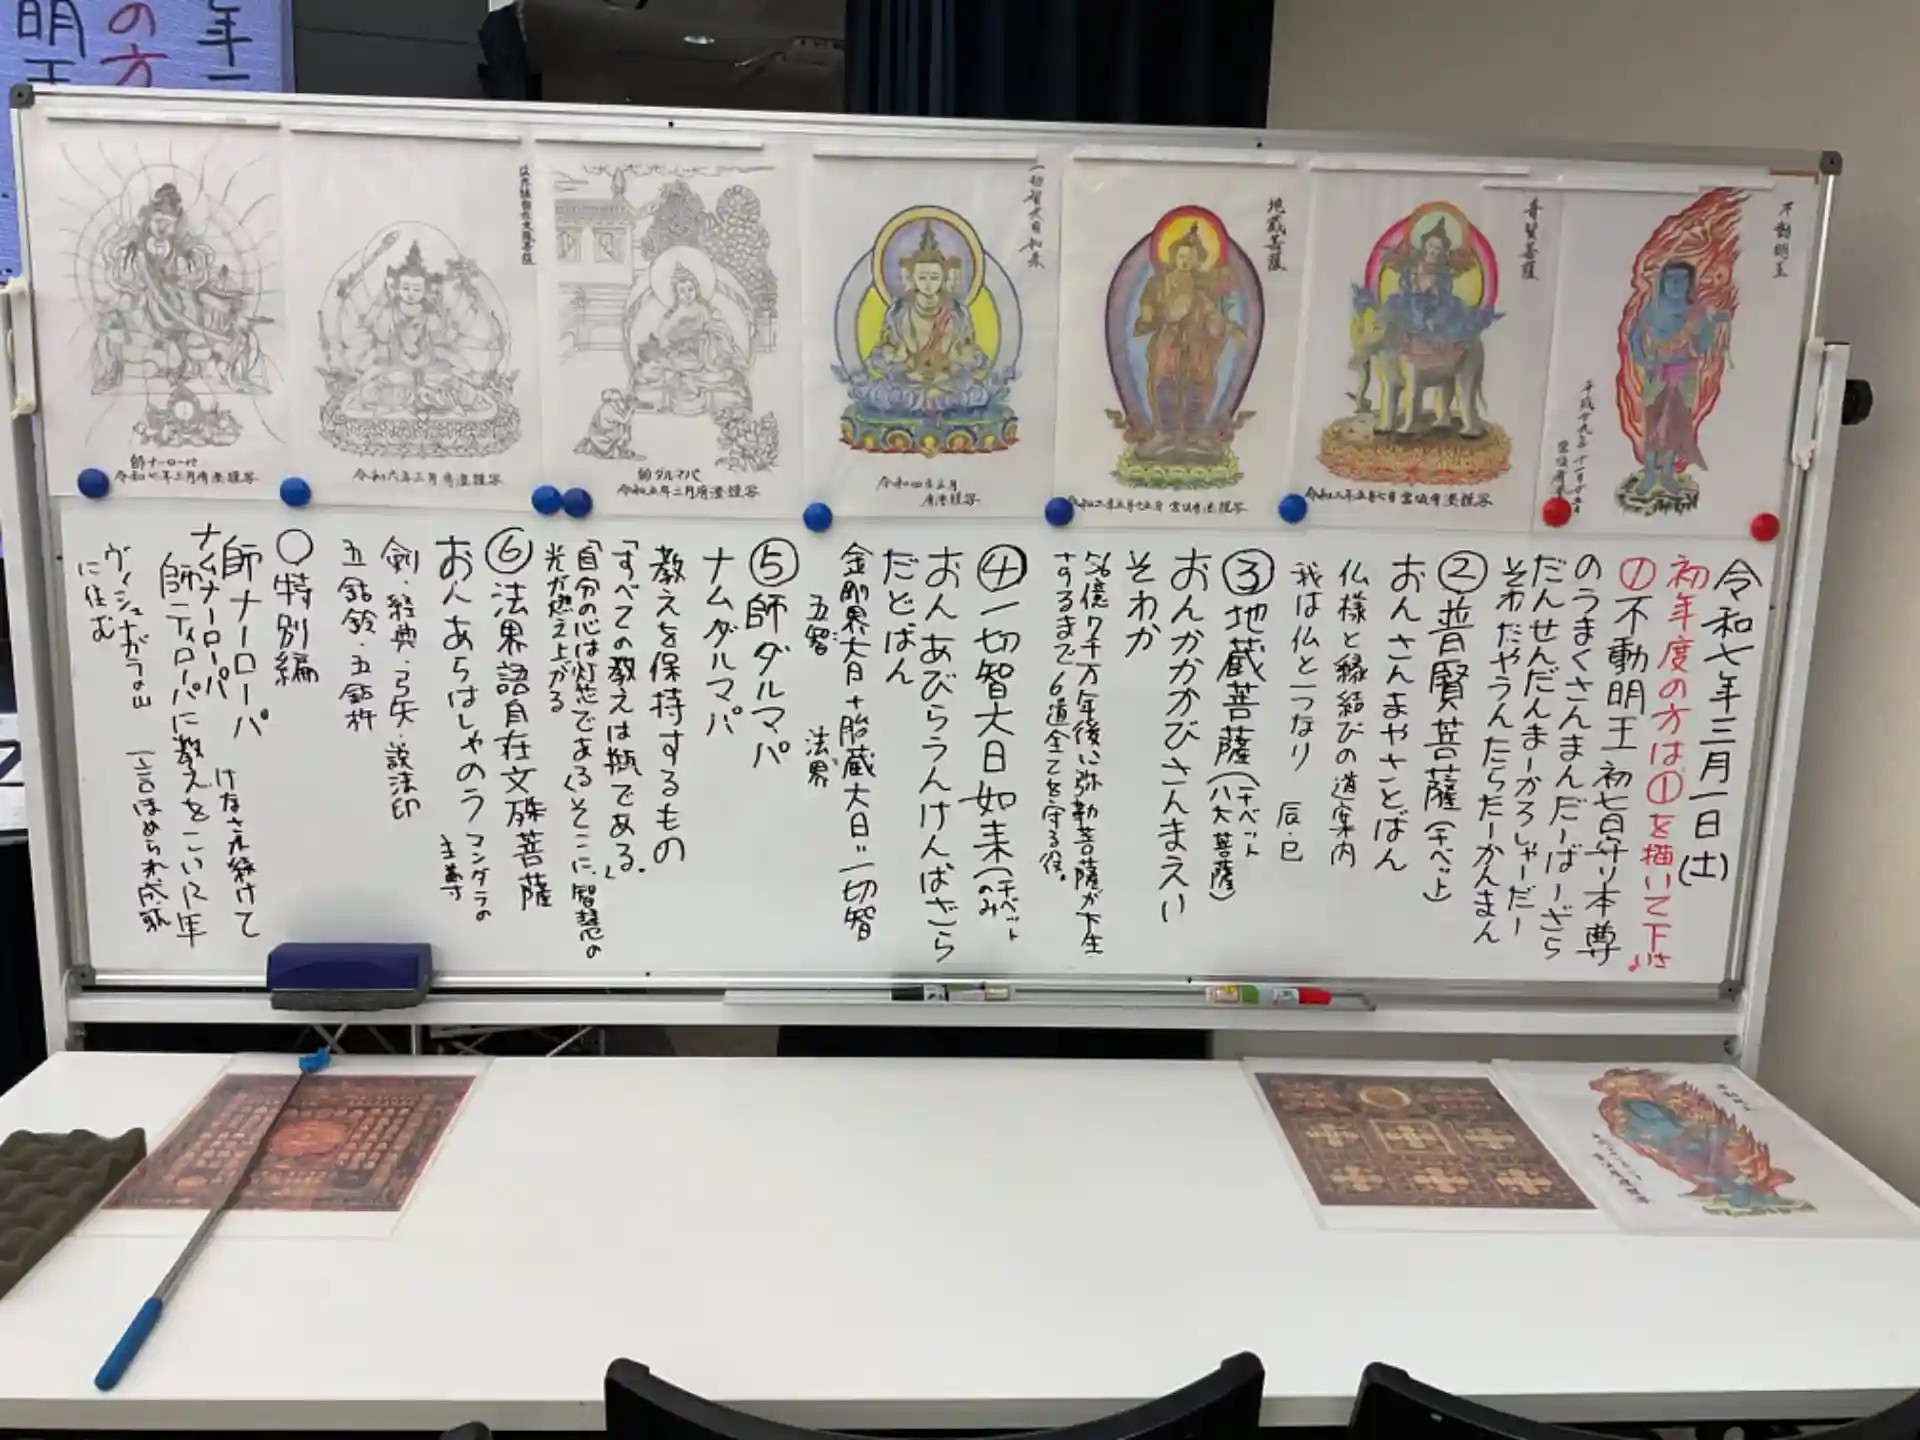 年
の方
明王
不動明王
普賢菩薩
地蔵菩薩
一切智大日如来
師ダルマパ
師ナーローパ
令和七年三月一日(土)
初年度の方は①を描いて下さい
①不動明王 初七日守り本尊
のうまくさんまんだーばーざら
だんせんだんまーかろしゃーだー
そわたやうんたらたーかんまん
②普賢菩薩(チベット)
おんさんまやさとばん
仏様と縁結びの道案内
我は仏と一つなり 辰・巳
③地蔵菩薩(チベット八大菩薩)
おんかかかびさんまえい
そわか
56億7千万年後に弥勒菩薩が下生
するまで6道全てを守る役。
④一切智大日如来(チベットのみ
おんあびらうんけんばざら
だどばん
金剛界大日+胎蔵大日=一切智
五智 法界
⑤師ダルマパ
ナムダルマパ
教えを保持するもの
「すべての教えは瓶である。」
「自分の心は灯芯である」そこに、智慧の
光が燃え上がる
⑥法界語自在文殊菩薩
おんあらはしゃのう マンダラの主尊
剣・経典・弓矢・説法印
五鈷鈴・五鈷杵
〇特別編
師ナーローパ
ナムナーローパ
けなされ続けて
師ティローパに教えをこい12年
一言ほめられ成就
に住む